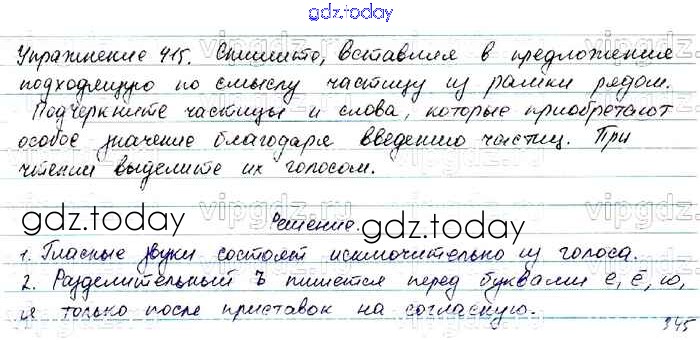 gdz.today
Упражнение 415. Спишите, вставляя в предложение
подходящую по смыслу частицу из рамки рядом.
Подчеркните частицы и слова, которые приобретают
особое значение благодаря введению частиц. При
чтении выделите их голосом.
gdz.today Решение. gdz.today
1. Гласные звуки состоят исключительно из голоса.
2. Разделительный Ъ пишется перед буквами е, ё, ю,
я только после приставок на согласную.
345